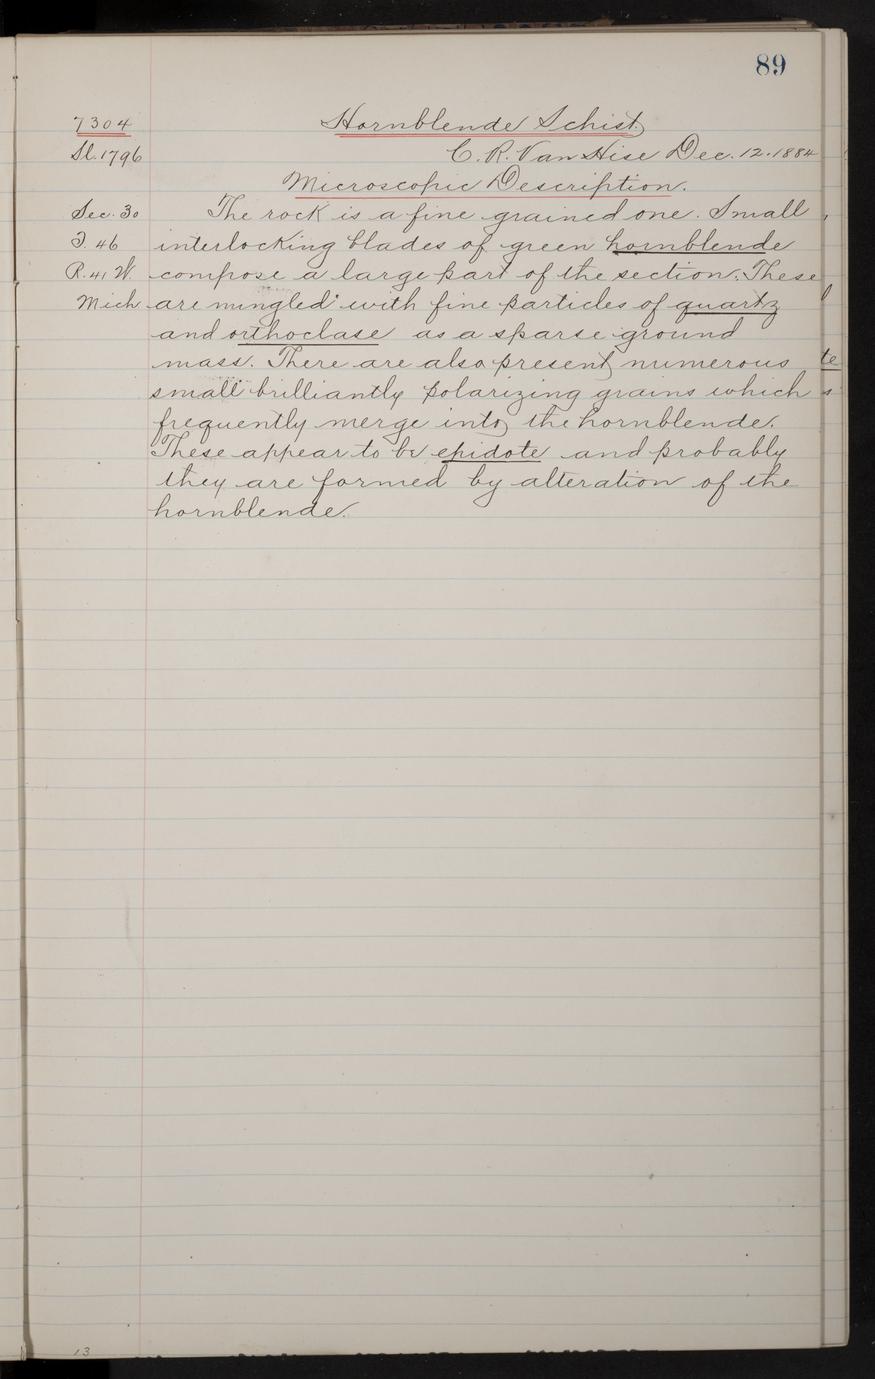 89
7304 Hornblende Schist.
Sl. 1796 C. R. Van Hise Dec. 12. 1884
Microscopic Description.
Sec. 30 The rock is a fine grained one. Small
T. 46 interlocking blades of green hornblende
R. 41 W. compose a large part of the section. These
Mich are mingled with fine particles of quartz
and orthoclase as a sparse ground
mass. There are also present numerous
small brilliantly polarizing grains which
frequently merge into the hornblende.
These appear to be epidote and probably
they are formed by alteration of the
hornblende.
te
s
13